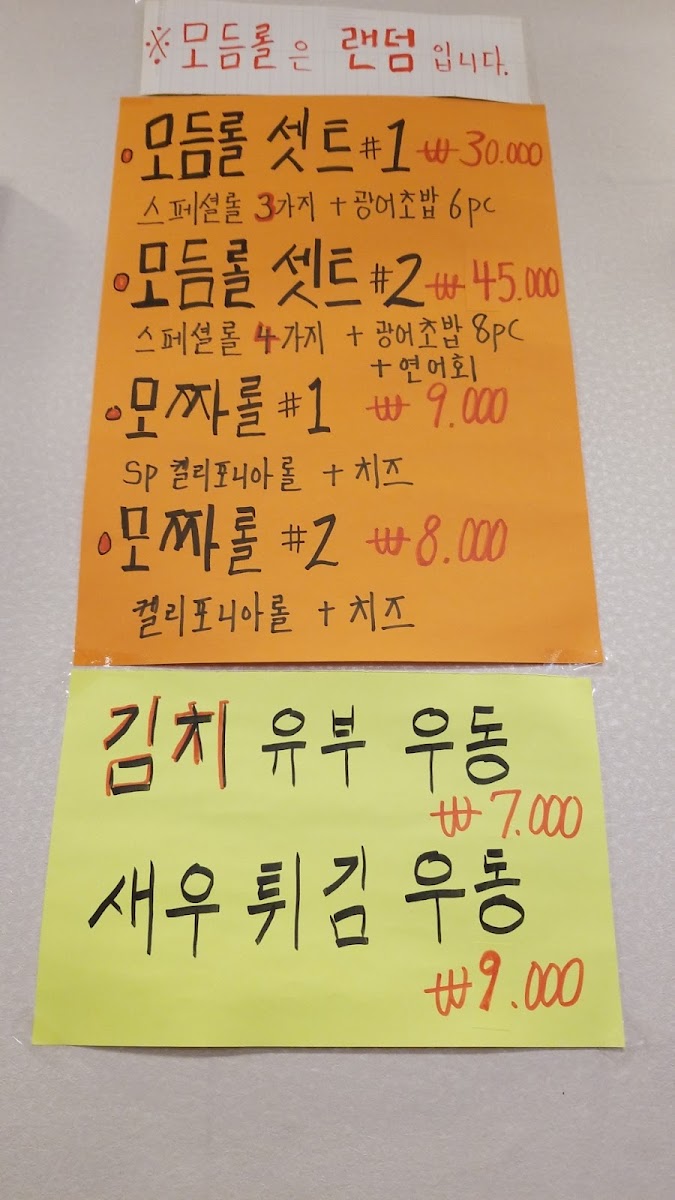 ※모듬롤은 랜덤입니다.
모듬롤 셋트 #1 ₩30.000
스페셜롤 3가지 + 광어초밥 6pc
모듬롤 셋트 #2 ₩45.000
스페셜롤 4가지 + 광어초밥 8pc
+ 연어회
모짜롤 #1 ₩9.000
SP 켈리포니아롤 + 치즈
모짜롤 #2 ₩8.000
켈리포니아롤 + 치즈
김치 유부 우동
₩7.000
새우 튀김 우동
₩9.000